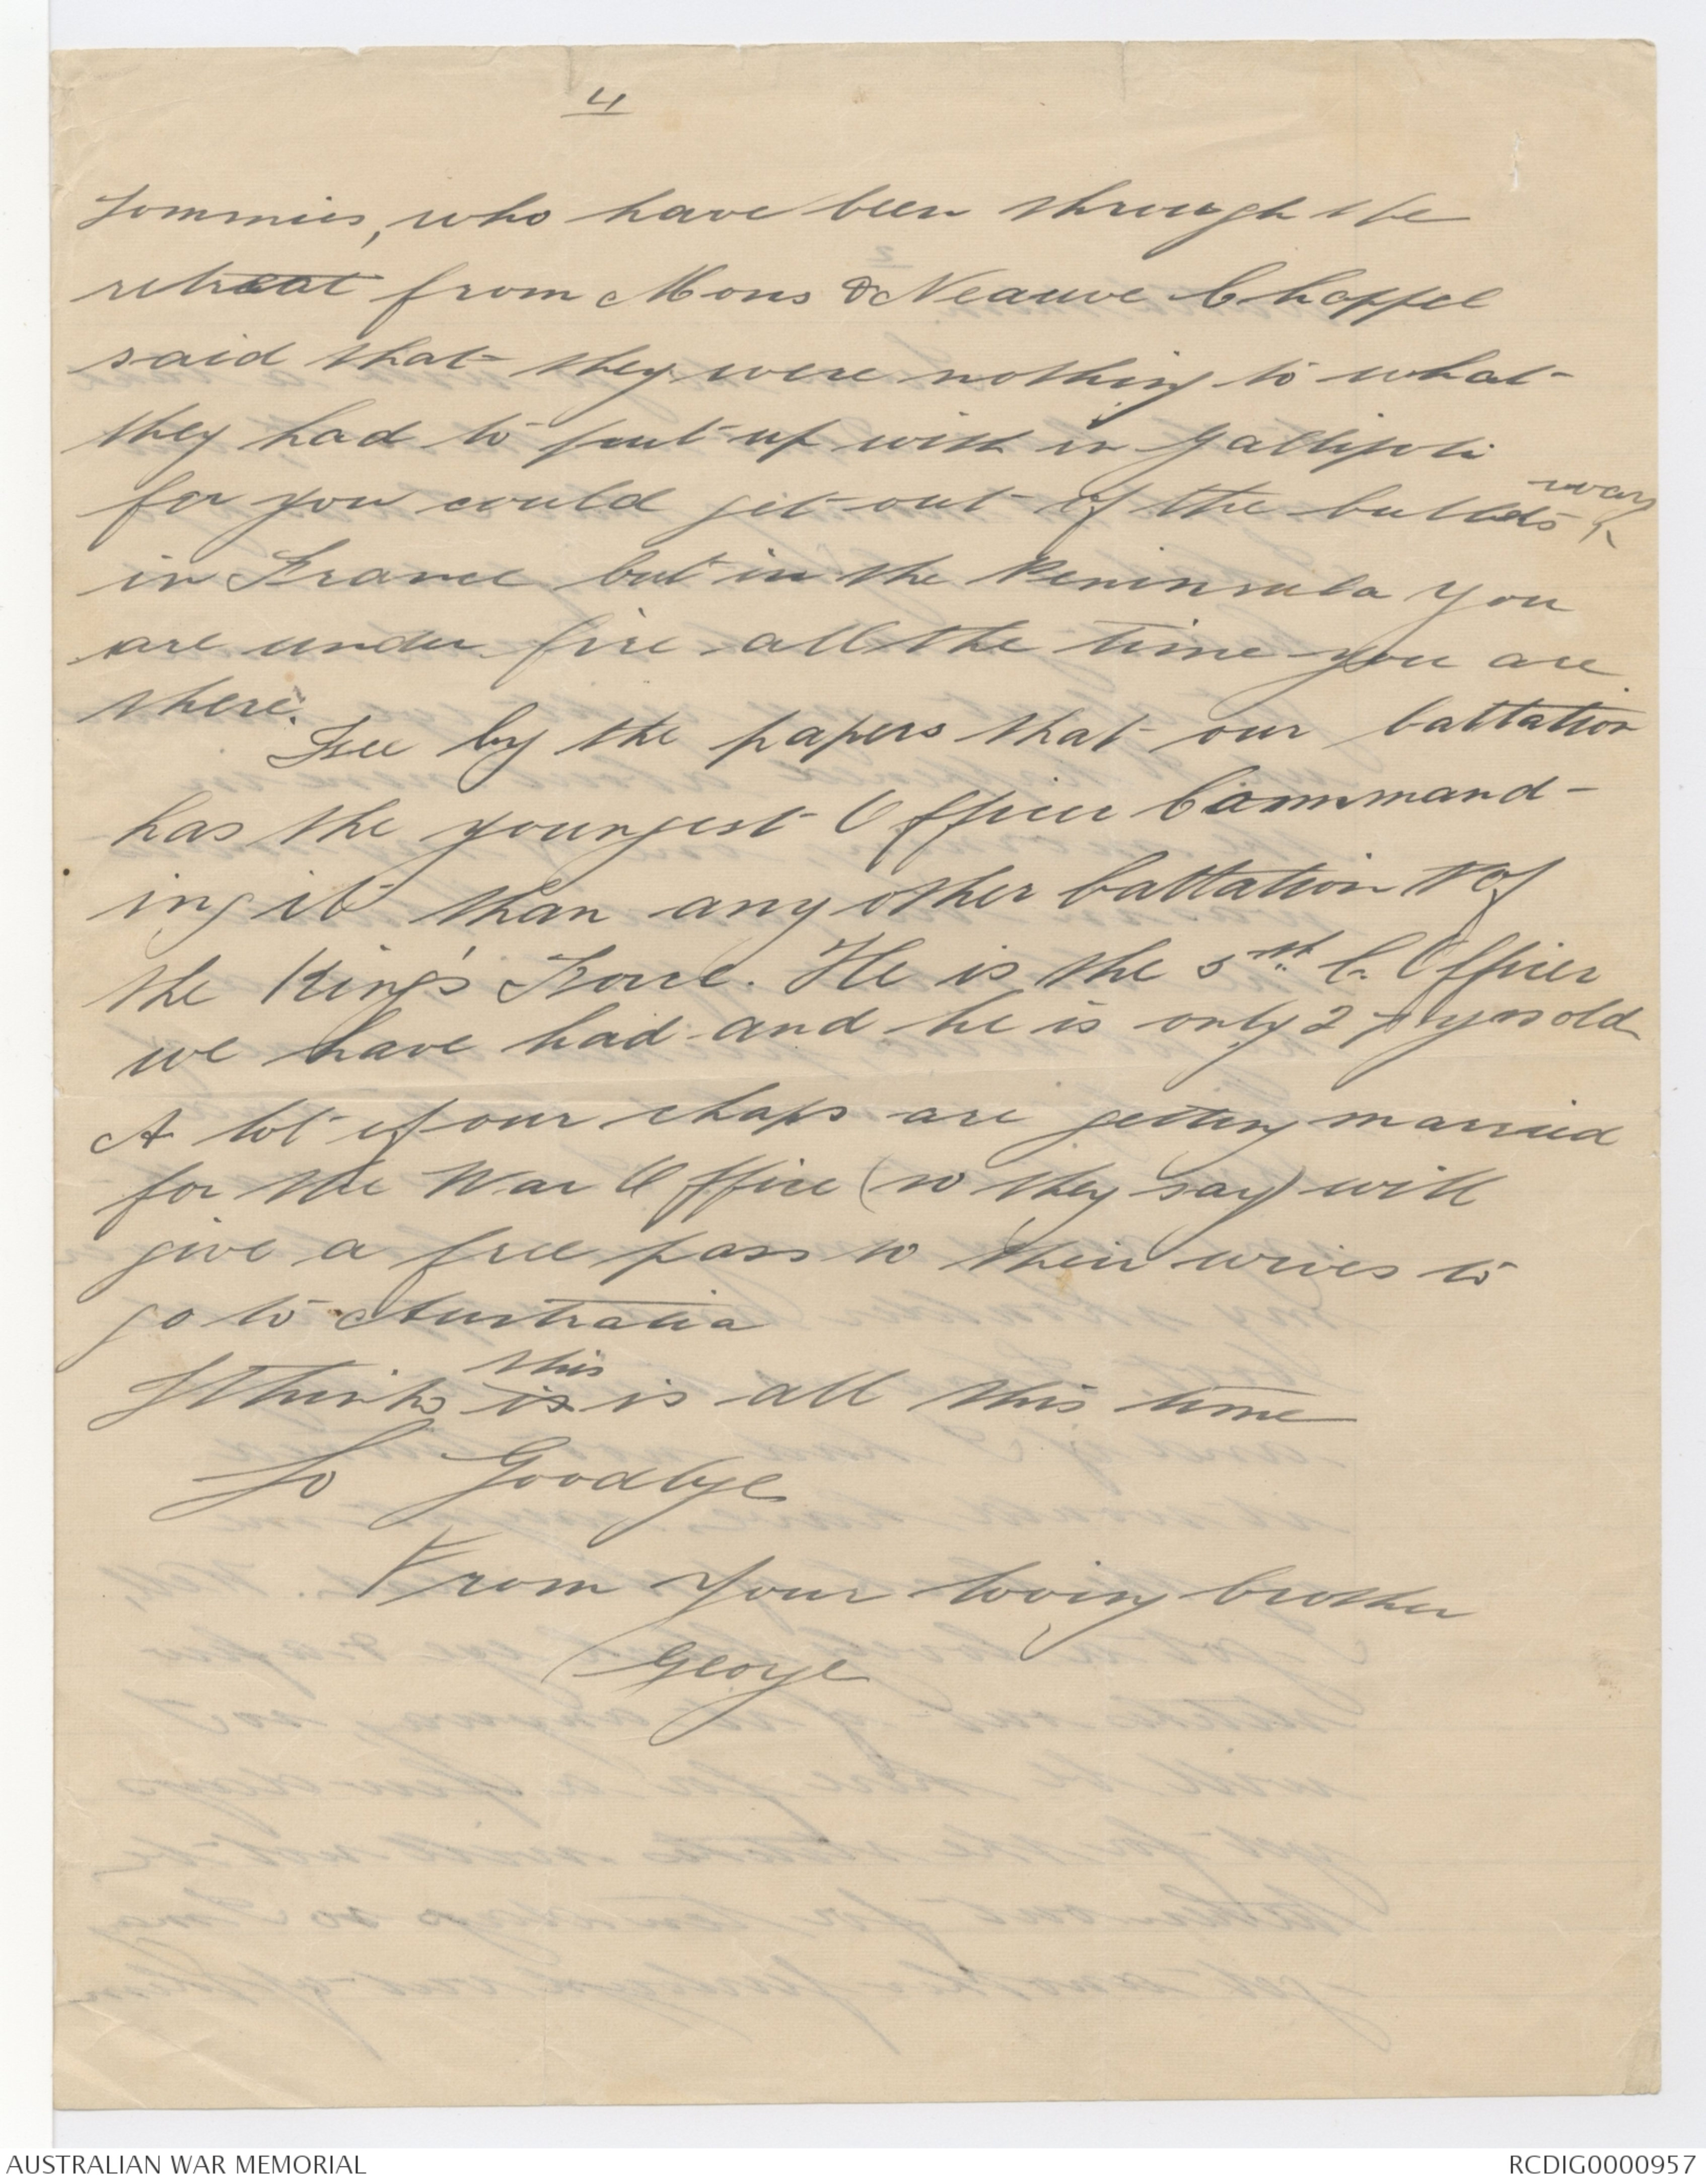 4
Tommies, who have been through the
retreat from Mons & Neauve Chappel
said that they were nothing to what
they had to put up with in Gallipoli
for you could get out of the bullets way
in France but in the Peninsula you
are under fire all the time you are
there.
I see by the papers that our battalion
has the youngest Officer Command-
ing it than any other battalion of
the King's Force. He is the 5th C. Officer
we have had and he is only 27 yrs old
A lot of our chaps are getting married
for the War Office (so they say) will
give a free pass to their wives to
go to Australia
I think this is all this time
So Goodbye
From your loving brother
George
AUSTRALIAN WAR MEMORIAL
RCDIG0000957